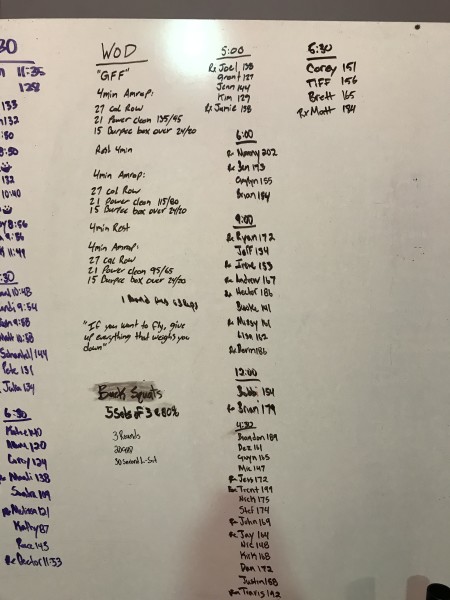 :30
11:35
128
133
132
:50
8:50
132
10:40
8:56
9:86
11:49
:30
10:48
9:54
9:58
10:58
144
Pete 131
Julia 134
6:30
Katie 140
120
Corey 124
Rx Mandi 138
109
Rx Melissa 121
Kathy 87
143
Rx Hector 11:33
WOD
"GFF"
4min Amrap:
27 Cal Row
21 Power clean 135/95
15 Burpee box over 24/20
Rest 4min
4min Amrap:
27 Cal Row
21 Power clean 115/80
15 Burpee box over 24/20
4min Rest
4min Amrap:
27 Cal Row
21 Power clean 95/65
15 Burpee box over 24/20
1 Round = 63 Reps
"If you want to fly, give
up everything that weighs you
down"
Back Squats
5 Sets of 3 @ 80%
3 Rounds
30 Second L-Sit
5:00
Rx Joel 138
Grant 127
Jenn 144
Kim 129
Rx Jamie 138
6:00
Rx 202
Rx Ben 173
155
Brian 184
9:00
Rx Ryan 172
Jeff 134
Rx Irene 153
Rx Andrew 167
Rx Hector 186
141
Rx Missy 161
Lisa 162
Rx 186
12:00
Bobbi 154
Rx Brian 179
4:30
Brandon 189
Dez 161
Gwyn 165
Mic 147
Rx Jess 172
Rx Trent 199
Nick 175
Stef 174
Rx John 169
Rx Jay 164
Nic 148
Kirk 168
Dan 172
Justin 158
Rx Travis 192
5:30
Corey 151
TIFF 156
Brett 165
Rx Matt 184